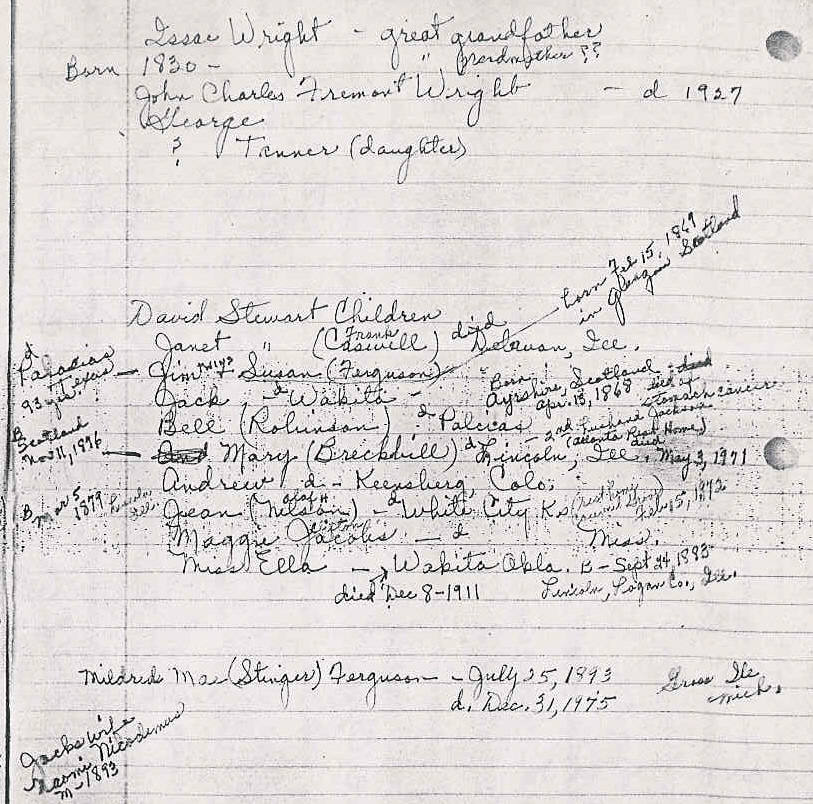 Issac Wright - great grandfather
" grandmother ??
Born 1830 -
John Charles Fremont Wright - d 1927
George
? Tanner (daughter)
born Feb 15, 1869
in Glasgow Scotland
David Stewart Children
Janet " (Frank Caswell) died Delavan, Ill.
d Palacias Texas 93 yrs. - Jim twins Susan (Ferguson)
Born Ayrshire, Scotland
Apr. 13, 1868 died of stomach cancer
Jack - d Wakita -
Bell (Robinson) d Palcias - 2nd husband Jackson
B Scotland Nov 11, 1876 - Mary (Breckhill) d Lincoln, Ill. (Atlanta Rest Home) died May 3, 1971
Andrew d - Keensberg, Colo.
B Mar 5 1879 Lincoln Ill. Jean (Olaf H Nilson) - d White City Ks (rest home) Feb 15, 1972
Maggie Jacobs - d Miss.
Miss Ella - Wakita Okla. B - Sept 24, 1883
died Dec 8-1911 Lincoln, Logan Co., Ill.
Mildred Mae (Stinger) Ferguson - July 25, 1893 Grose Ile
d. Dec. 31, 1975 Mich.
Jacks wife
Naomi Nicodemus
m - 1893